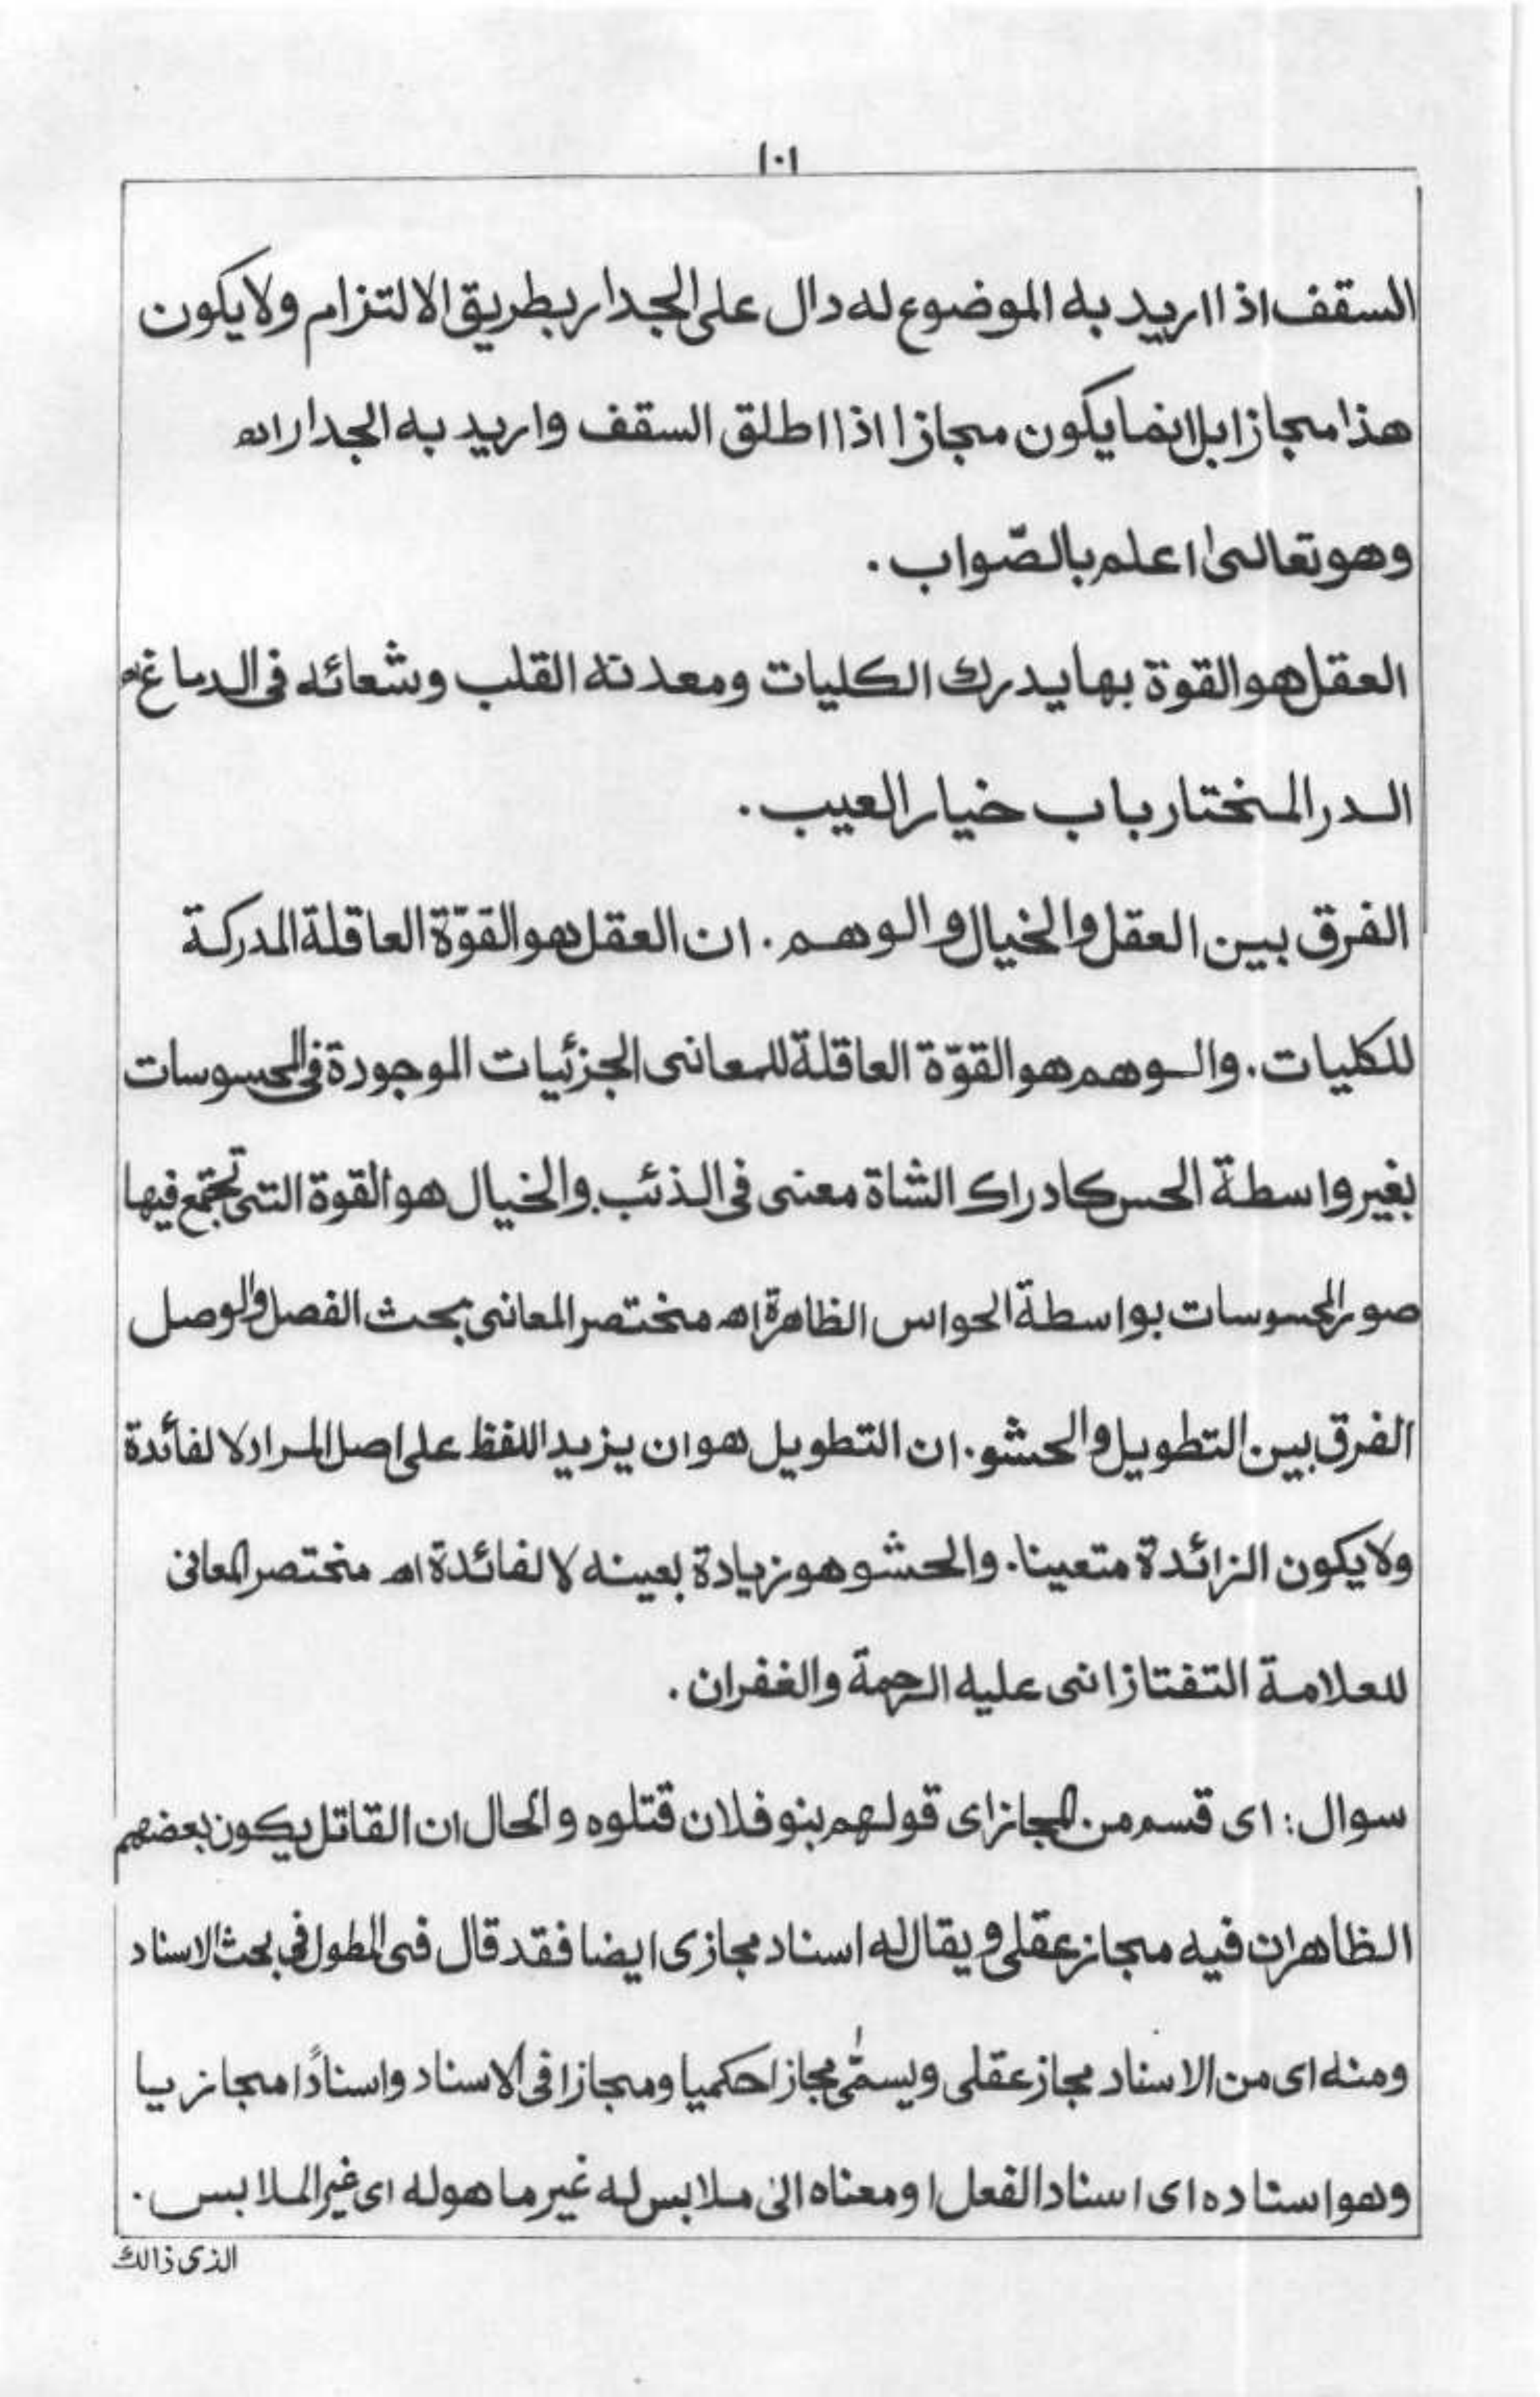 ١٠١
السقف اذا اريد به الموضوع له دال على الجدار بطريق الالتزام ولا يكون
هذا مجازا بل انما يكون مجازا اذا اطلق السقف واريد به الجدار اھ
وهو تعالىٰ اعلم بالصّواب .
العقل هو القوة بها يدرك الكليات ومعدنه القلب وشعائه فى الدماغ اھ
الدر المختار باب خيار العيب .
الفرق بين العقل والخيال والوهم . ان العقل هو القوّة العاقلة المدركة
للكليات . والوهم هو القوّة العاقلة للمعانى الجزئيات الموجودة فى المحسوسات
بغير واسطة الحس كادراك الشاة معنى فى الذئب . والخيال هو القوة التى تجتمع فيها
صور المحسوسات بواسطة الحواس الظاهرة اھ مختصر المعانى بحث الفصل والوصل
الفرق بين التطويل والحشو . ان التطويل هو ان يزيد اللفظ على اصل المراد لا لفائدة
ولا يكون الزائدة متعينا . والحشو هو زيادة بعينه لا لفائدة اھ مختصر المعانى
للعلامة التفتازانى عليه الرحمة والغفران .
سوال : اى قسم من المجاز اى قولهم بنو فلان قتلوه والحال ان القاتل يكون بعضهم
الظاهر ان فيه مجاز عقلى ويقال له اسناد مجازى ايضا فقد قال فى المطول فى بحث الاسناد
ومنه اى من الاسناد مجاز عقلى ويسمّٰى مجازا حكميا ومجازا فى الاسناد واسنادًا مجازييا
وهو اسناده اى اسناد الفعل او معناه الى ملابس له غير ما هو له اى غير الملابس .
الذى ذالك